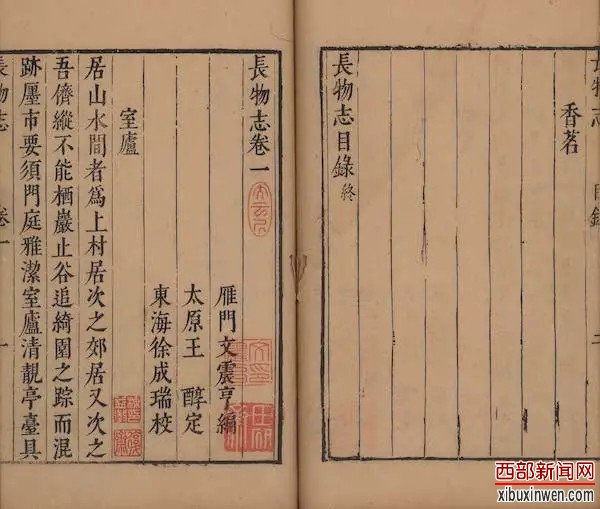 長物志 目錄
香茗
長物志目錄 終
長物志卷一
雁門文震亨編
太原王 醇定
東海徐成瑞校
室廬
居山水間者爲上村居次之郊居又次之
吾儕縱不能栖巖止谷追綺園之踪而混
跡廛市要須門庭雅潔室廬清靚亭臺具
長物志 卷一 一
西部新闻网
xibuxinwen.com